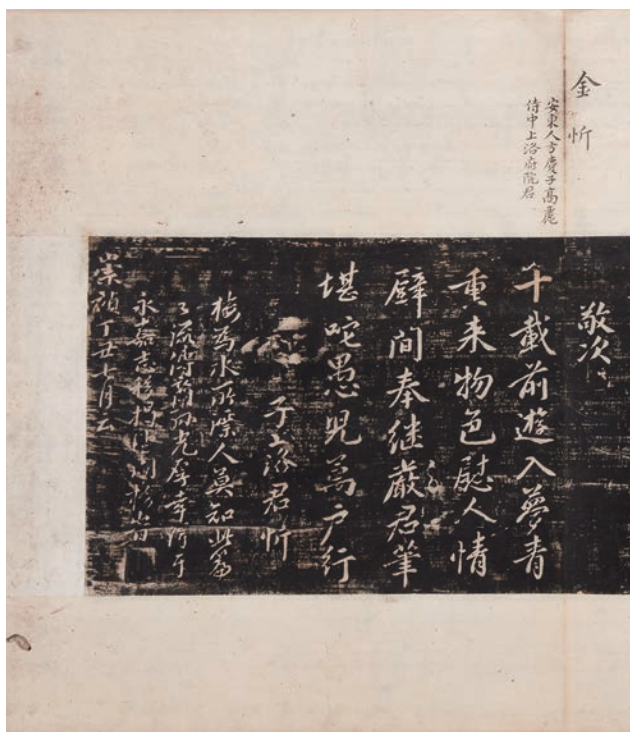 金忻
安東人方慶子高麗
侍中上洛府院君
敬次
十載前遊入夢青
重来物色慰人情
壁間奉継嚴君筆
堪咤愚児萬户行
子上洛君忻
板為水所漂人莫知此篇
之流傳
永嘉志移揭
崇禎丁丑七月